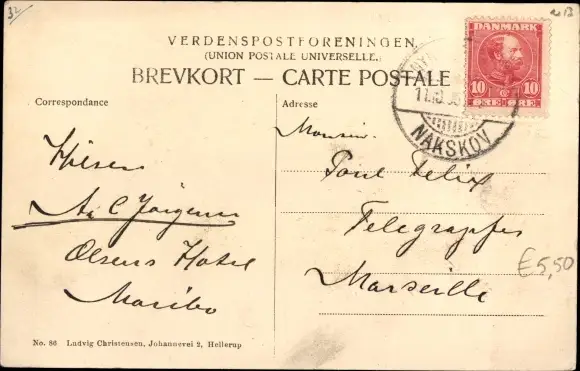 32
VERDENSPOSTFORENINGEN.
(UNION POSTALE UNIVERSELLE.)
BREVKORT — CARTE POSTALE
DANMARK
10 10
ØRE ØRE
NAKSKOV
Correspondance
Hilsen
C Jörgensen
Olsens Hotel
Maribo
Adresse
Monsieur
Poul Felix
Marseille
£5,50
No. 86 Ludvig Christensen, Johannevei 2, Hellerup